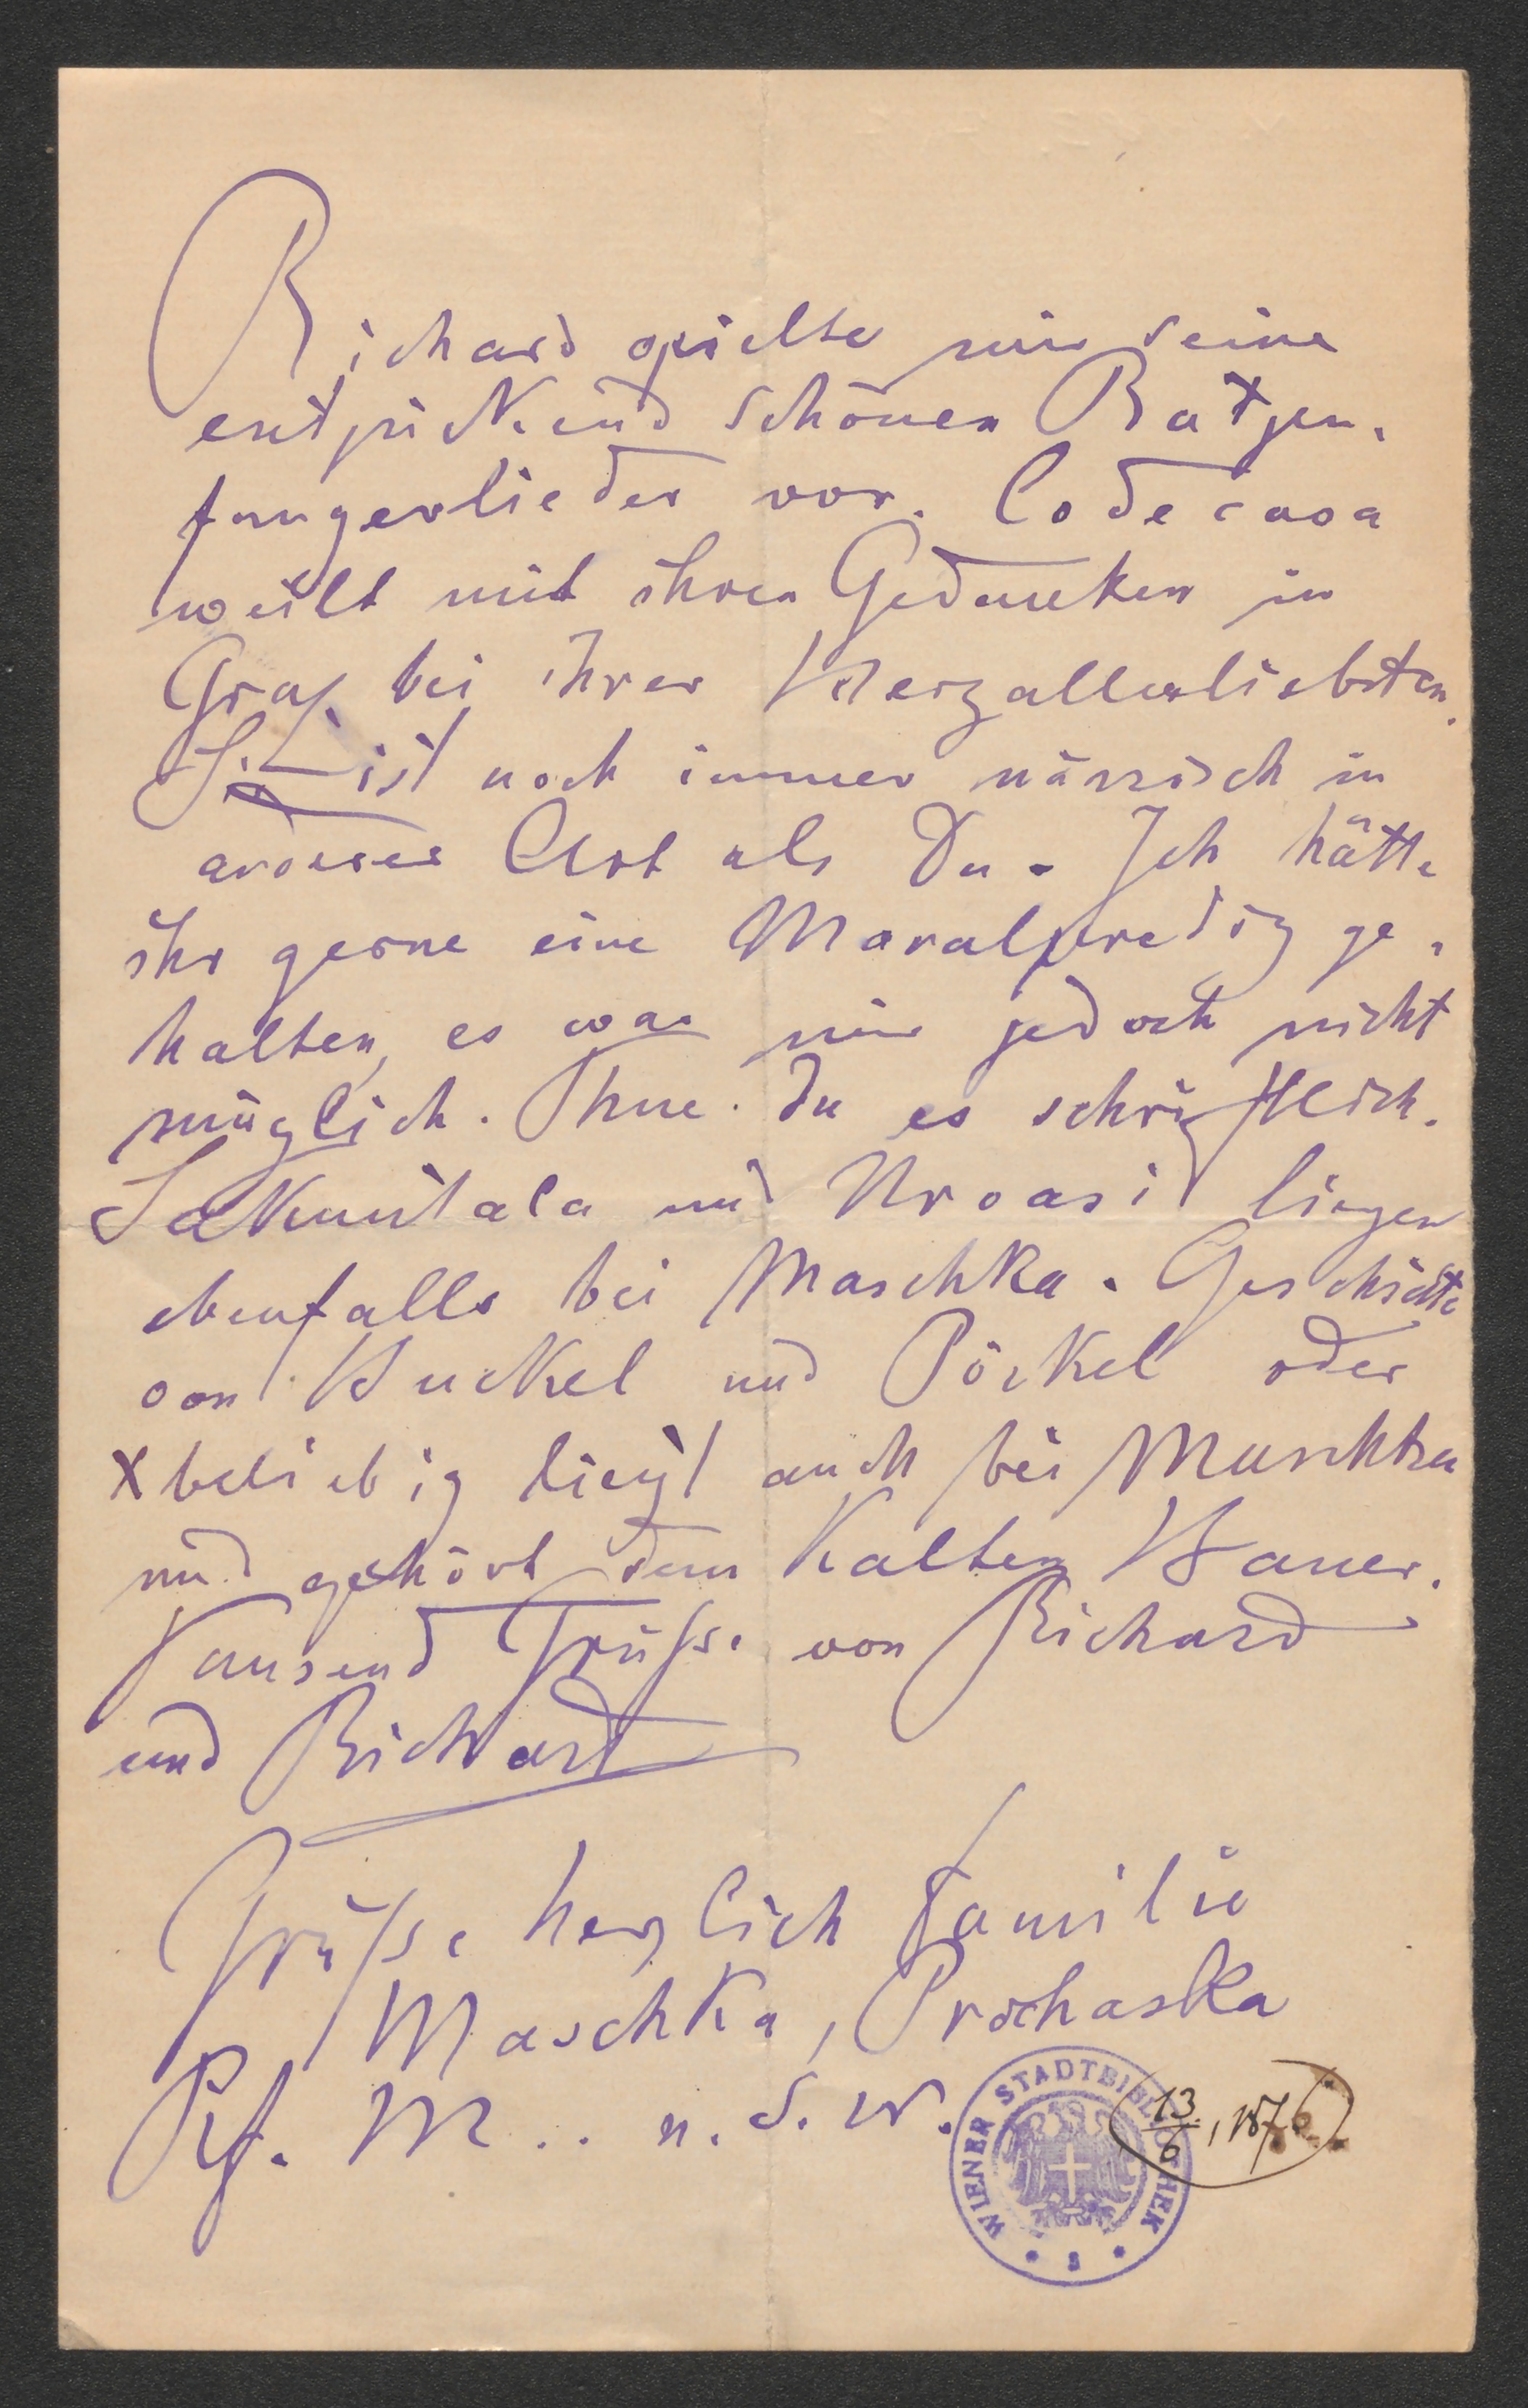 Richard spielte mir seine
entzückend schönen Ratten-
fängerlieder vor. Codecasa
weilt mit ihren Gedanken in
Graz bei ihrer Herzallerliebsten.
Sie ist noch immer närrisch in
anderer Art als Du. Ich hätte
ihr gerne eine Moralpredig ge-
halten, es war mir jedoch nicht
möglich. Thue Du es schriftlich.
Sakuntala und Urvasi liegen
ebenfalls bei Maschka. Geschichte
von Huckel und Pöckel oder
x beliebig liegt auch bei Maschka
und gehört dem Kalten Bauer.
Tausend Grüße von Richard
und Richard
Grüße herzlich Familie
Maschka, Prochaska
Prf. M.. u. s. w.
WIENER STADTBIBLIOTHEK
13/6, 187